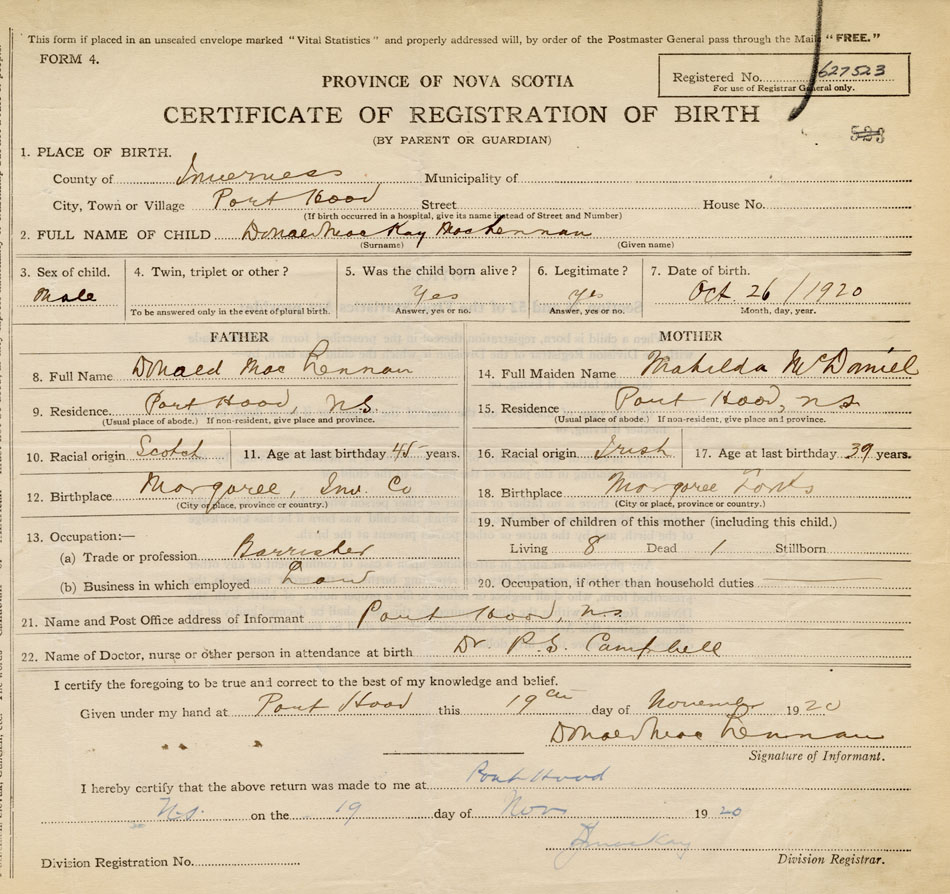 This form if placed in an unsealed envelope marked "Vital Statistics" and properly addressed will, by order of the Postmaster General pass through the Mails "FREE."
FORM 4.
Registered No. 627523
For use of Registrar General only.
PROVINCE OF NOVA SCOTIA
CERTIFICATE OF REGISTRATION OF BIRTH
523
(BY PARENT OR GUARDIAN)
1. PLACE OF BIRTH.
County of Inverness Municipality of
City, Town or Village Port Hood Street House No.
(If birth occurred in a hospital, give its name instead of Street and Number)
2. FULL NAME OF CHILD Donald MacKay MacLennan
(Surname) (Given name)
3. Sex of child. 4. Twin, triplet or other? 5. Was the child born alive? 6. Legitimate? 7. Date of birth.
Male Yes yes Oct. 26 / 1920
To be answered only in the event of plural birth. Answer, yes or no. Answer, yes or no. Month, day, year.
FATHER MOTHER
8. Full Name Donald MacLennan 14. Full Maiden Name Mathilda McDaniel
9. Residence. Port Hood, N.S. 15. Residence Port Hood, N.S.
(Usual place of abode.) If non-resident, give place and province. (Usual place of abode.) If non-resident, give place and province.
10. Racial origin Scotch 11. Age at last birthday 45 years. 16. Racial origin Irish 17. Age at last birthday 39 years.
12. Birthplace Margaree, Inv. Co 18. Birthplace Margaree Forks
(City or place, province or country.) (City or place, province or country.)
13. Occupation:— 19. Number of children of this mother (including this child.)
(a) Trade or profession Barrister Living 8 Dead 1 Stillborn
(b) Business in which employed Law 20. Occupation, if other than household duties
21. Name and Post Office address of Informant Port Hood, N.S.
22. Name of Doctor, nurse or other person in attendance at birth Dr. P.S. Campbell
I certify the foregoing to be true and correct to the best of my knowledge and belief.
Given under my hand at Port Hood this 19th day of November 1920
Donald MacLennan
Signature of Informant.
I hereby certify that the above return was made to me at Port Hood
N.S. on the 19 day of Nov 1920
Division Registration No. Division Registrar.